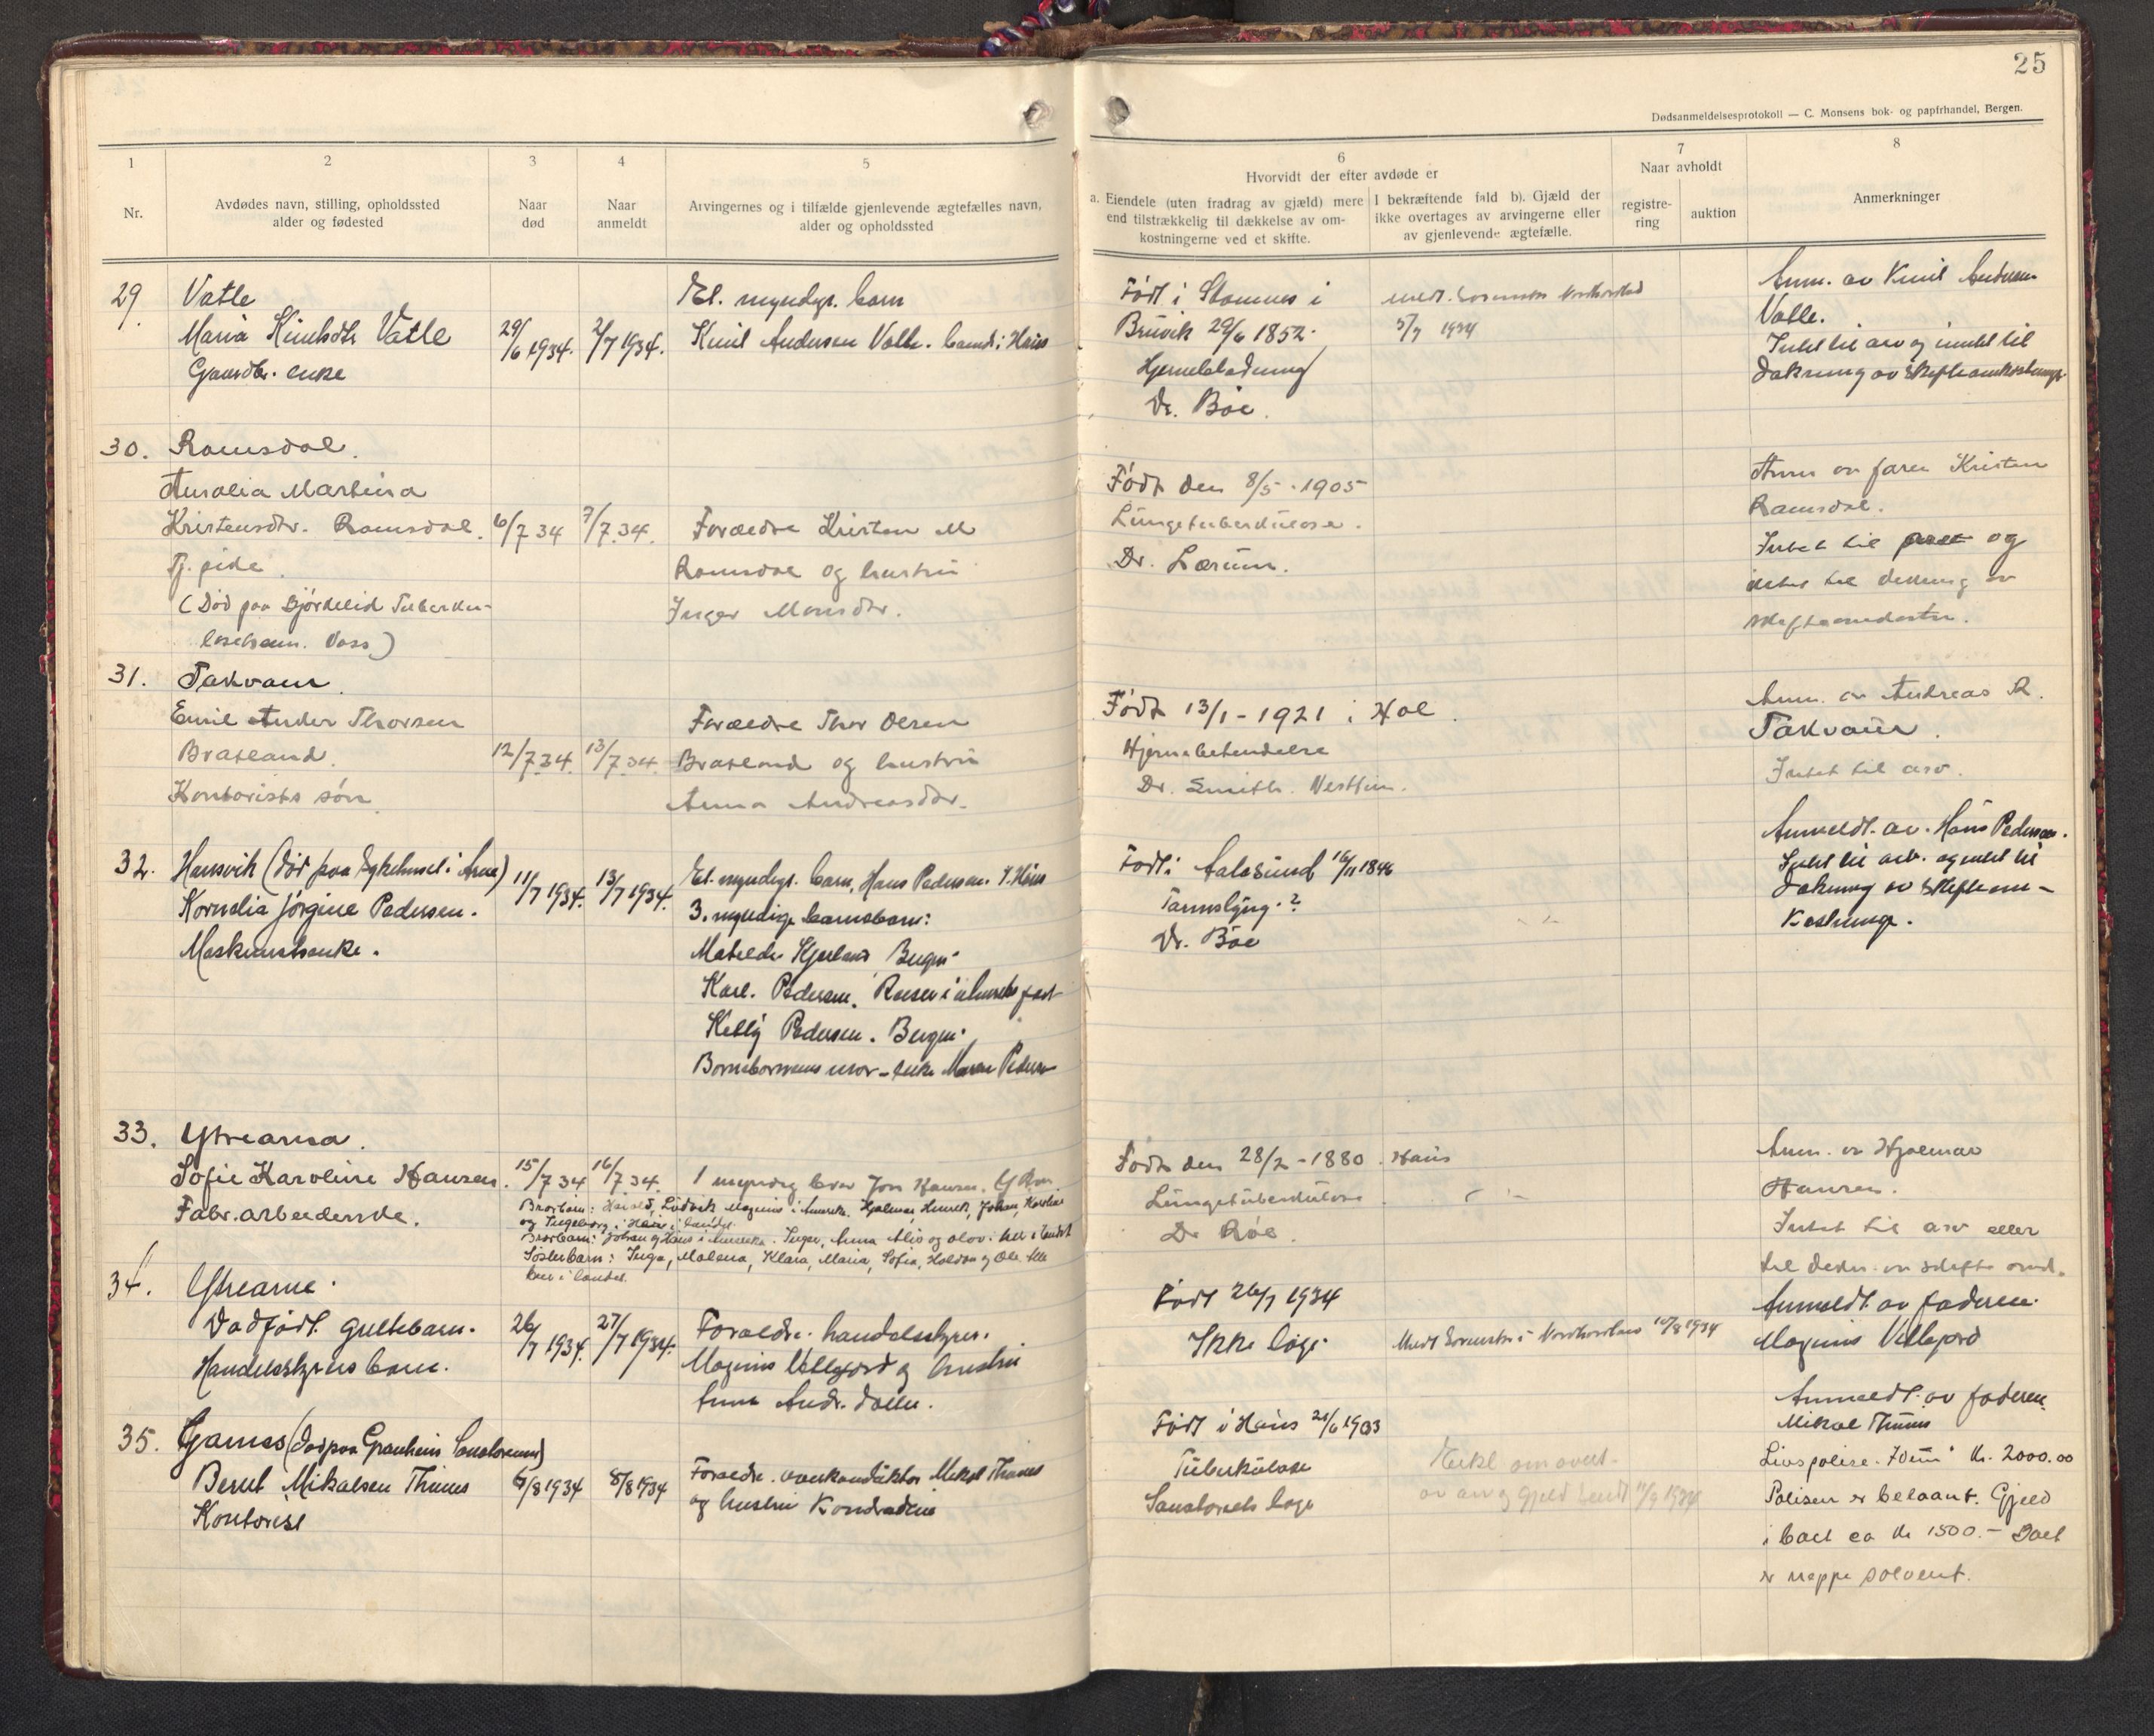 25
Dødsanmeldelsesprotokoll — C. Monsens bok- og papirhandel, Bergen.
1
Nr.
2
Avdødes navn, stilling, opholdssted
alder og fødested
3
Naar
død
4
Naar
anmeldt
5
Arvingernes og i tilfælde gjenlevende ægtefælles navn,
alder og opholdssted
6
Hvorvidt der efter avdøde er
a. Eiendele (uten fradrag av gjæld) mere
end tilstrækkelig til dækkelse av om-
kostningerne ved et skifte.
I bekræftende fald b). Gjæld der
ikke overtages av arvingerne eller
av gjenlevende ægtefælle.
7
Naar avholdt
registre-
ring
auktion
8
Anmerkninger
29.
Vatle
Maria Vatle
Gaardbr. enke
29/6 1934.
2/7 1934.
Et. myndigt. barn
Andersen Vatle.
Født i Stamnes i
Bruvik 29/6 1852.
Hjerneblødning
Dr. Böe.
5/7 1934
Anm. av Andersen
Vatle.
Intet til arv og intet til
dækning av skifteomkostninger
30.
Ramsdal.
Amalia Martina
Kristensdtr. Ramsdal.
Tj. pike.
(Død paa Tuberku-
losehem. Voss)
6/7 34
7/7 34.
Forældre Kristen M
Ramsdal og hustru
Inger Monsdtr.
Født den 8/5 - 1905
Lungetuberkulose.
Dr. Lærum.
Anm av faren Kristen
Ramsdal.
Intet til og
intet til dekning av
31.
Takvam.
Emil Ander Thorsen
Brataland.
Kontorists søn.
12/7 34.
13/7 34.
Forældre Thor Olsen
Brataland og hustru
Anna Andreasdtr.
Født 13/1 - 1921 i Hol.
Hjernebetendelse
Dr. Smith.
Anm. av Andreas R.
Takvam.
Intet til arv.
32.
Hansvik (død paa Sykehuset i Arna)
Kornelia Jørgine Pedersen.
Maskinistenke.
11/7 1934.
13/7 1934.
Et. myndigt. barn, Hans Pedersen.
3. myndige barnebarn:
Bergen.
Karl. Pedersen.
Pedersen. Bergen.
mor - enke Pedersen
Født i Aalesund 16/11 1846
Tarmslyng.?
Dr. Böe
Anmeldt. av. Hans Pedersen.
Intet til arv. og intet til
dækning av skifteom-
kostninge.
33.
Ytrearna.
Sofie Karoline Hansen.
Fabr. arbeiderske.
15/7 34
16/7 34.
1 myndig bror Hansen.
Brorbarn: Harald, Ludvik Magnus i Amerika. Hjalmar, Henrik, Johan, Karoline
og Ingeborg i Haus i landet.
Brorbarn: Johan og Hans i Amerika. Inger, Anna Alis og Olav: her i landet
Søsterbarn: Inga, Malena, Klara, Maria, Sofia, Haldon og Ole alle
her i landet.
Født den 28/2 - 1880. Haus
Lungetuberkulose.
Dr.
Anm. av Hjalmar
Hansen.
Intet til arv eller
til dekn. av skifte omk.
34.
Ytrearne.
Dødfødt guttebarn.
Handelsstyrers barn.
26/7 1934.
27/7 1934.
Forældre. handelsstyrer.
Magnus og hustru
Anna Andr.
Født 26/7 1934
Ikke læge.
10/8 1934
Anmeldt av faderen.
Magnus
35.
Garnes (død paa Granheim Sanatorium)
Bernt Mikalsen Thunes
Kontorist
6/8 1934
8/8 1934
Forældre. Mikal Thunes
og hustru Kondradine
Født i Haus 21/6 1903
Tuberkulose
Sanatoriets læge
av arv og gjeld sendt 11/9 1934
Anmeldt. av faderen
Mikal Thunes
Livspolise. "Idun" kr. 2000.00
Polisen er belaant. Gjeld
i boet ca kr 1500.- Boet
er neppe solvent.